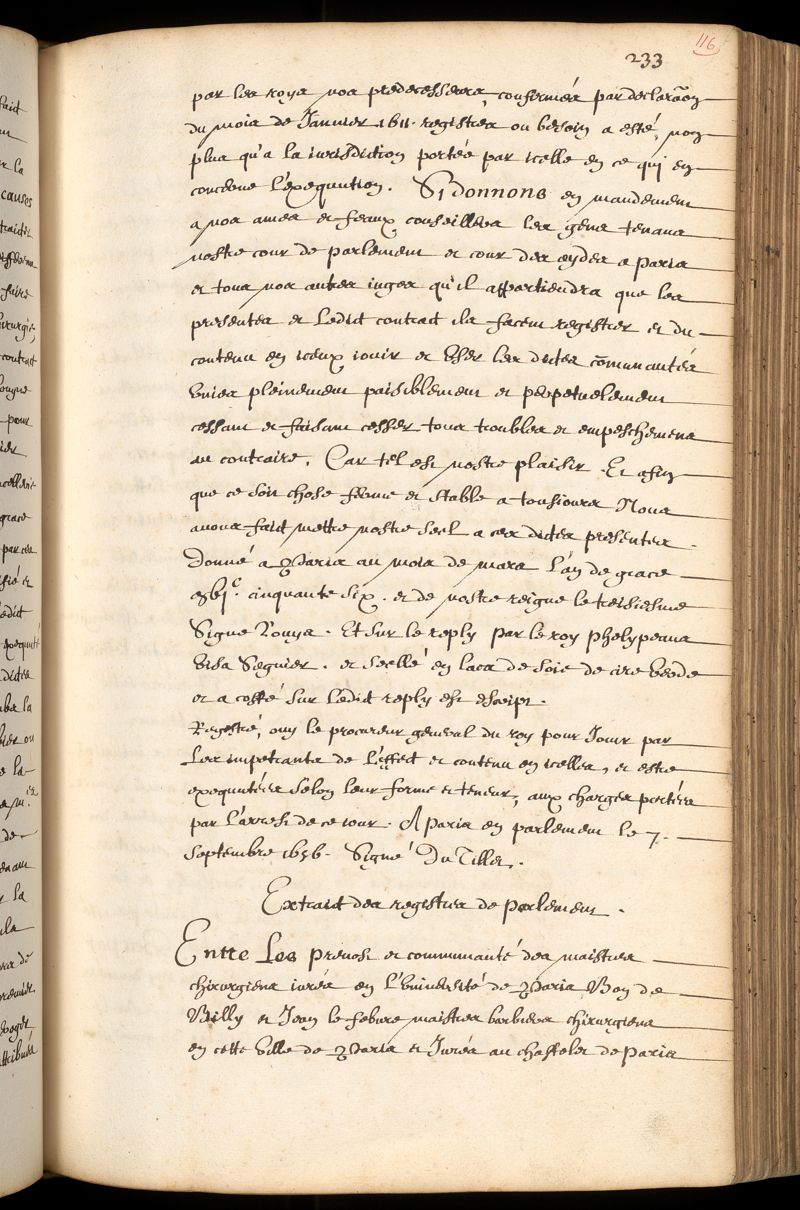 116
233
par les roys nos predecesseurs, confirmés par declaraõn
du mois de Januier 1611. registrées ou besoin a esté, non
plus qu'a la iurisdiction portée par icelle en ce qui en
concerne l'exequution. Si donnons en mandement
a nos amés et feaux conseillers les gens tenans
nostre cour de parlement et cour des aydes a Paris
et tous nos autres iuges qu'il appartiendra que les
presentes et Ledict contract ils facent registrer et du
contenu en iceux iouir et vser les dictes cõmunautés
vnies pleinement paisiblement et perpetuelement
cessant et faisant cesser tous troubles et empeschemens
au contraire, Car tel est nostre plaisir. Et afin
que ce soit chose ferme et stable a tousiours Nous
auons fait mettre nostre seel a ces dictes presentes.
Donné a Paris au mois de mars l'an de grace
cinquante six. et de nostre reigne le treisiesme
Signe Louys. Et sur le reply par le roy phelypeaus
visa Seguier. et scellé en lacs de soie de cire verde
et a costé sur Ledict reply est escript.
Registré, ouy le procureur general du roy pour Jouir par
Les impetrants de l'effect et contenu en icelles, et estre
exequutées selon leur forme et teneur, aux charges portées
par l'arrest de ce iour. A Paris en parlement le 7.
Septembre 1656. Signé Du Tillet.
Extraict des registres de Parlement.
Entre Les Preuost et communauté des maistres
chirurgiens iurés en l'Vniuersité de Paris
Billy et Jean le febure maistres barbiers chirurgiens
en cette ville de Paris et Jurés au chastelet de Paris